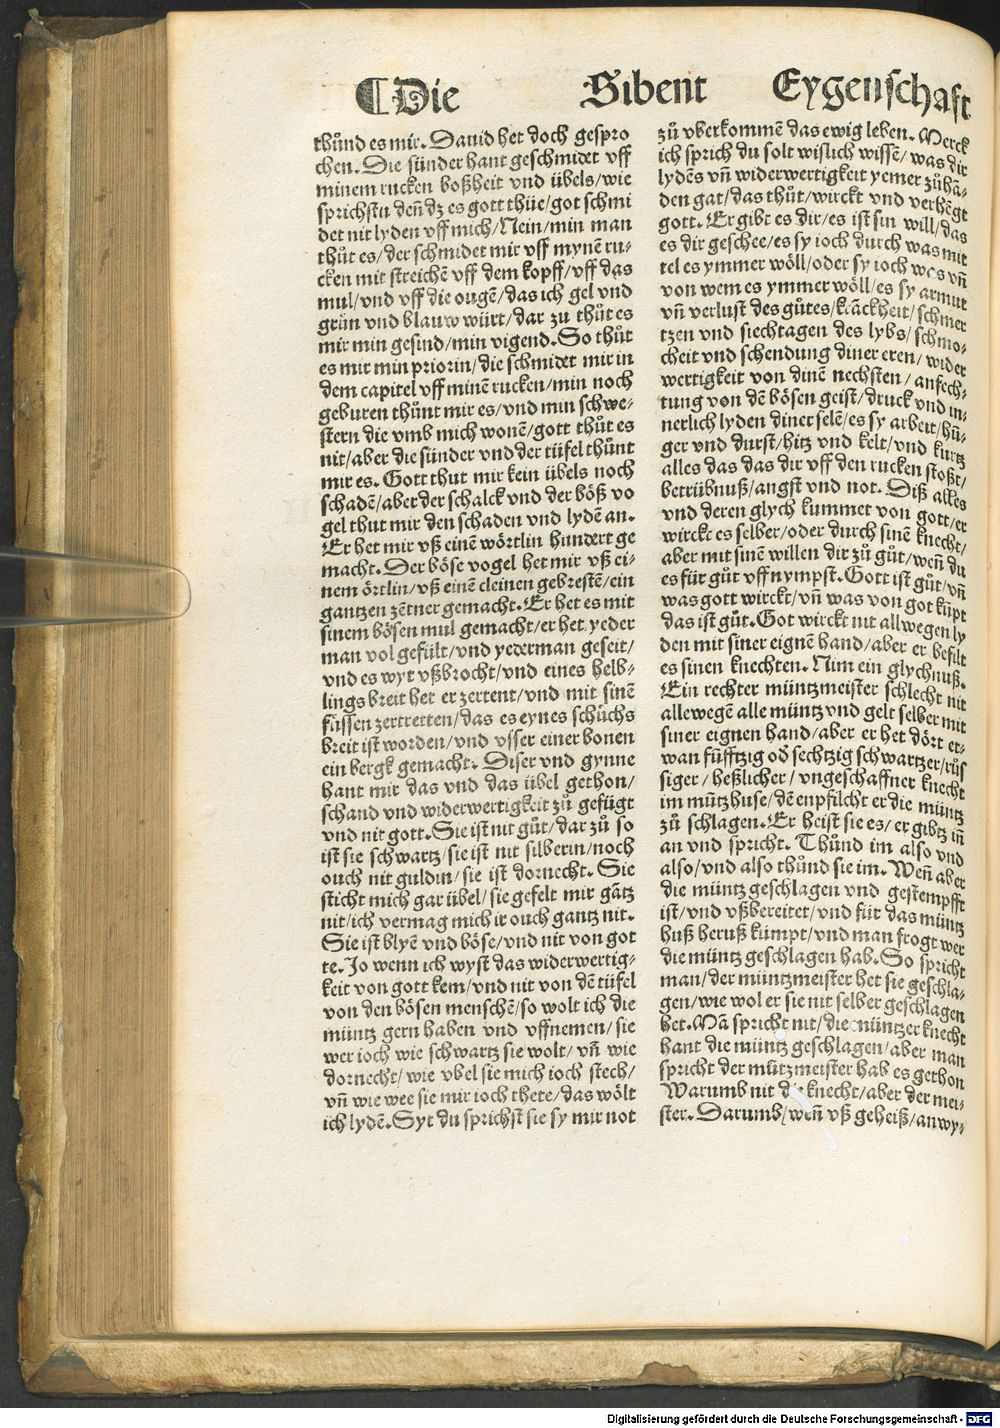 ¶Die Sibent Eygenschaft
thůnd es mir. Dauid het doch gespro
chen. Die sünder hant geschmidet vff
minem rucken boßheit vnd übels/wie
sprichstu deñ dz es gott thüe/got schmi
det nit lyden vff mich/Nein/min man
thůt es/der schmidet mir vff mynē ru-
cken mit streichē vff dem kopff/vff das
mul/vnd vff die ougē/das ich gel vnd
grün vnd blauw würt/dar zu thůt es
mir min gesind/min vigend. So thůt
es mir min priorin/die schmidet mir in
dem capitel vff minē rucken/min noch
geburen thůnt mir es/vnd min schwe-
stern die vmb mich wonē/gott thůt es
nit/aber die sünder vnd der tüfel thůnt
mir es. Gott thut mir kein übels noch
schadē/aber der schalck vnd der böß vo
gel thut mir den schaden vnd lydē an.
Er het mir vß einē wörtlin hundert ge
macht. Der böse vogel het mir vß ei-
nem örtlin/vß einē cleinen gebrestē/ein
gantzen zētner gemacht. Er het es mit
sinem bösen mul gemacht/er het yeder
man vol gefült/vnd yederman geseit/
vnd es wyt vßbrocht/vnd eines helb-
lings breit het er zertent/vnd mit sinē
füssen zertretten/das es eynes schůchs
breit ist worden/vnd vsser einer bonen
ein bergk gemacht. Diser vnd gynne
hant mir das vnd das übel gethon/
schand vnd widerwertigkeit zů gefügt
vnd nit gott. Sie ist nit gůt/dar zů so
ist sie schwartz/sie ist nit silberin/noch
ouch nit guldin/sie ist dornecht. Sie
sticht mich gar übel/sie gefelt mir gātz
nit/ich vermag mich ir ouch gantz nit.
Sie ist blyē vnd böse/vnd nit von got
te. Jo wenn ich wyst das widerwertig-
keit von gott kem/vnd nit von dē tüfel
von den bösen menschē/so wolt ich die
müntz gern haben vnd vffnemen/sie
wer ioch wie schwartz sie wolt/vñ wie
dornecht/wie vbel sie mich ioch stech/
vñ wie wee sie mir ioch thete/das wölt
ich lydē. Syt du sprichst sie sy mir not
zů vberkommē das ewig leben. Merck
ich sprich du solt wislich wissē/was dir
lydēs vñ widerwertigkeit yemer zůhā-
den gat/das thůt/wirckt vnd verhēgt
gott. Er gibt es dir/es ist sin will/das
es dir geschee/es sy ioch durch was mit
tel es ymmer wöll/oder sy ioch was vñ
von wem es ymmer wöll/es sy armut
vñ verlust des gůtes/krāckheit/schmer
tzen vnd siechtagen des lybs/schmo-
cheit vnd schendung diner eren/wider
wertigkeit von dinē nechsten/anfech-
tung von dē bösen geist/druck vnd in-
nerlich lyden diner selē/es sy arbeit/hū-
ger vnd durst/hitz vnd kelt/vnd kurtz
alles das das dir vff den rucken stoßt/
betrübnuß/angst vnd not. Diß alles
vnd deren glych kummet von gott/er
wirckt es selber/oder durch sinē knecht/
aber mit sinē willen dir zů gůt/weñ du
es für gůt vffnympst. Gott ist gůt/vñ
was gott wirckt/vñ was von got kūpt
das ist gůt. Got wirckt nit allwegen ly
den mit siner eignē hand/aber er befilt
es sinen knechten. Nim ein glychnuß.
Ein rechter müntzmeister schlecht nit
allewegē alle müntz vnd gelt selber mit
siner eignen hand/aber er het dört et-
wan fünfftzig oď sechtzig schwartzer/růs
siger/heßlicher/vngeschaffner knecht
im müntzhuse/dē enpfilcht er die müntz
zů schlagen. Er heist sie es/er gibtz iñ
an vnd spricht. Thůnd im also vnd
also/vnd also thůnd sie im. Weñ aber
die müntz geschlagen vnd gestempfft
ist/vnd vßbereitet/vnd für das müntz
huß heruß kumpt/vnd man frogt wer
die müntz geschlagen hab. So spricht
man/der müntzmeister het sie geschla-
gen/wie wol er sie nit selber geschlagen
het. Mā spricht nit/die müntzer knecht
hant die müntz geschlagen/aber man
spricht der mütz meister hab es gethon
Warumb nit die knecht/aber der mei-
ster. Darumb/weñ vß geheiß/anwy-
Digitalisierung gefördert durch die Deutsche Forschungsgemeinschaft - DFG